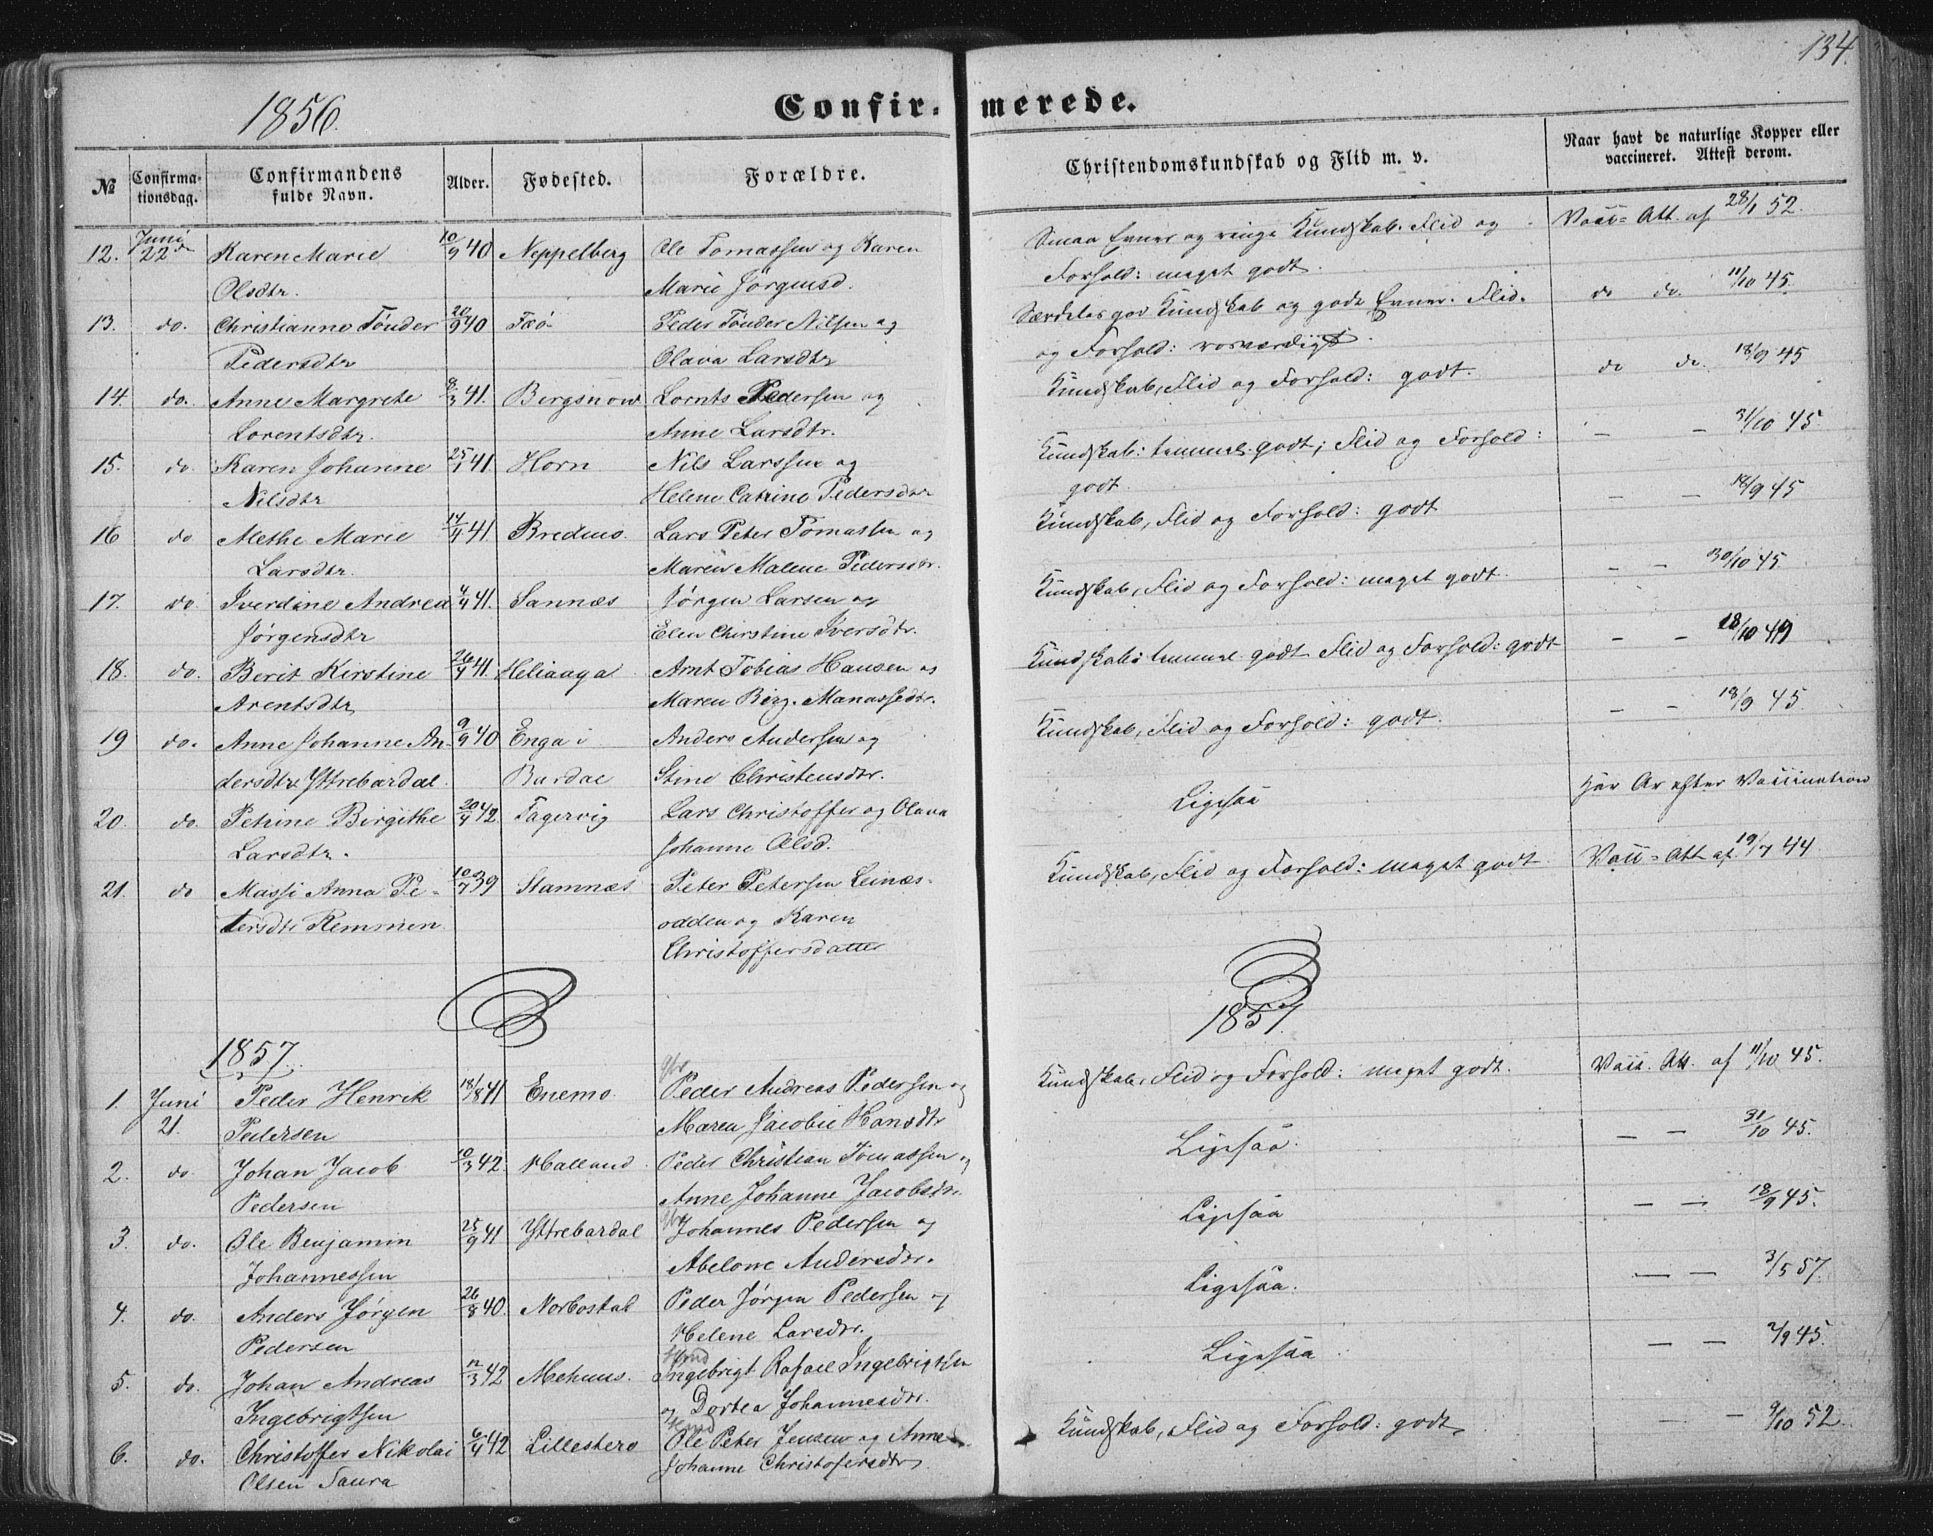 134.
1856.
Confirmerede.
№
Confirmationsdag.
Confirmandens fulde Navn.
Alder.
Fødested.
Forældre.
Christendomskundskab og Flid m. v.
Naar havt de naturlige Kopper eller vaccineret. Attest derom.
12. Juni 22de Karen Marie 10/9 40 Neppelberg Ole Tomassen og Karen Smaa Evner og ringe Kundskab. Flid og Vacc= Att. af 28/1 52.
Olsdtr. Marie Jörgensd. Forhold: meget godt.
13. do. Christianne Tönder 20/9 40 Peder Tönder Nilsen og Særdeles god Kundskab og gode Evner. Flid do do. 11/10 45.
Pedersdtr Olava Larsdtr og Forhold: rosværdigt.
14. do. Anne Margrete 8/3 41. Lornts Pedersen og Kundskab, Flid og Forhold: godt. do do. 18/9 45
Lorentsdtr. Anne Larsdtr.
15. do. Karen Johanne 25/1 41. Horn Nils Larssen og Kundskab: temmel. godt; Flid og Forhold: — — 31/10 45.
Nilsdtr Helene Catrine Pedersdtr godt.
16 do Methe Marie 14/4 41. Bredmo. Lars Peter Tomassen og Kundskab, Flid og Forhold: godt — — 18/9 45
Larsdtr. Maren Malene Pedersdtr.
17. do. Iverdine Andrea 4/4 41. Sannæs Jörgen Larsen og Kundskab, Flid og Forhold: meget godt. — — 30/10 45
Jörgensdtr Elen Chirstine Iversdtr.
18. do. Berit Kirstine 26/4 41. Heliaaga Arnt Tobias Hansen og Kundskab: temmel. godt Flid og Forhold: godt — — 18/10 49
Arentsdtr Maren Birg. Manassedtr.
19 do. Anne Johanne An- 9/9 40 Enga i Anders Andersen og Kundskab, Flid og Forhold: godt. — — 18/9 45
dersdtr Yttrebardal. Bardal Stine Christensdtr.
20. do. Petrine Birgithe 20/4 42. Fagervig Lars Christoffer og Olava Ligesaa har Ar efter Vaccination
Larsdtr. Johanne Olsd.
21. do Massi Anna Pe- 10/7 39 Stamnæs Peter Petersen Leinæs- Kundskab, Flid og Forhold: meget godt Vacc= Att af 19/7 44
tersdtr Remmen odden og Karen
Christoffersdatter
1857. 1857.
1. Juni 21. Peder Henrik 18/8 41 Enemo Peder Andreas Pedersen og Kundskab, Flid og Forhold: meget godt. Vacc. Att. af 11/10 45.
Pedersen Maren Jacobie Hansdtr
2. do Johan Jacob 10/3 42. Halland Peder Christian Tomassen og Ligesaa. — — 31/10 45.
Pedersen Anne Johanne Jacobsdtr.
3. do. Ole Benjamin 25/9 41 Yttrebardal Johannes Pedersen og Ligesaa — — 18/9 45.
Johannessen Abelone Andersdtr.
4. do. Anders Jörgen 26/8 40. Norbostad Peder Jörgen Pedersen og Ligesaa. — — 3/5 57.
Pedersen Helene Larsdtr.
5. do. Johan Andreas 12/3 42 Mehuus. Ingebrigt Rafael Ingebrigtsen Ligesaa. — — 2/9 45.
Ingebrigtsen og Dortea Johannesdtr.
6. do. Christoffer Nikolai 6/4 42 Lillestero Ole Peter Jensen og Anne Kundskab, Flid og Forhold: godt — — 9/10 52.
Olsen Saura Johanne Christofersdtr